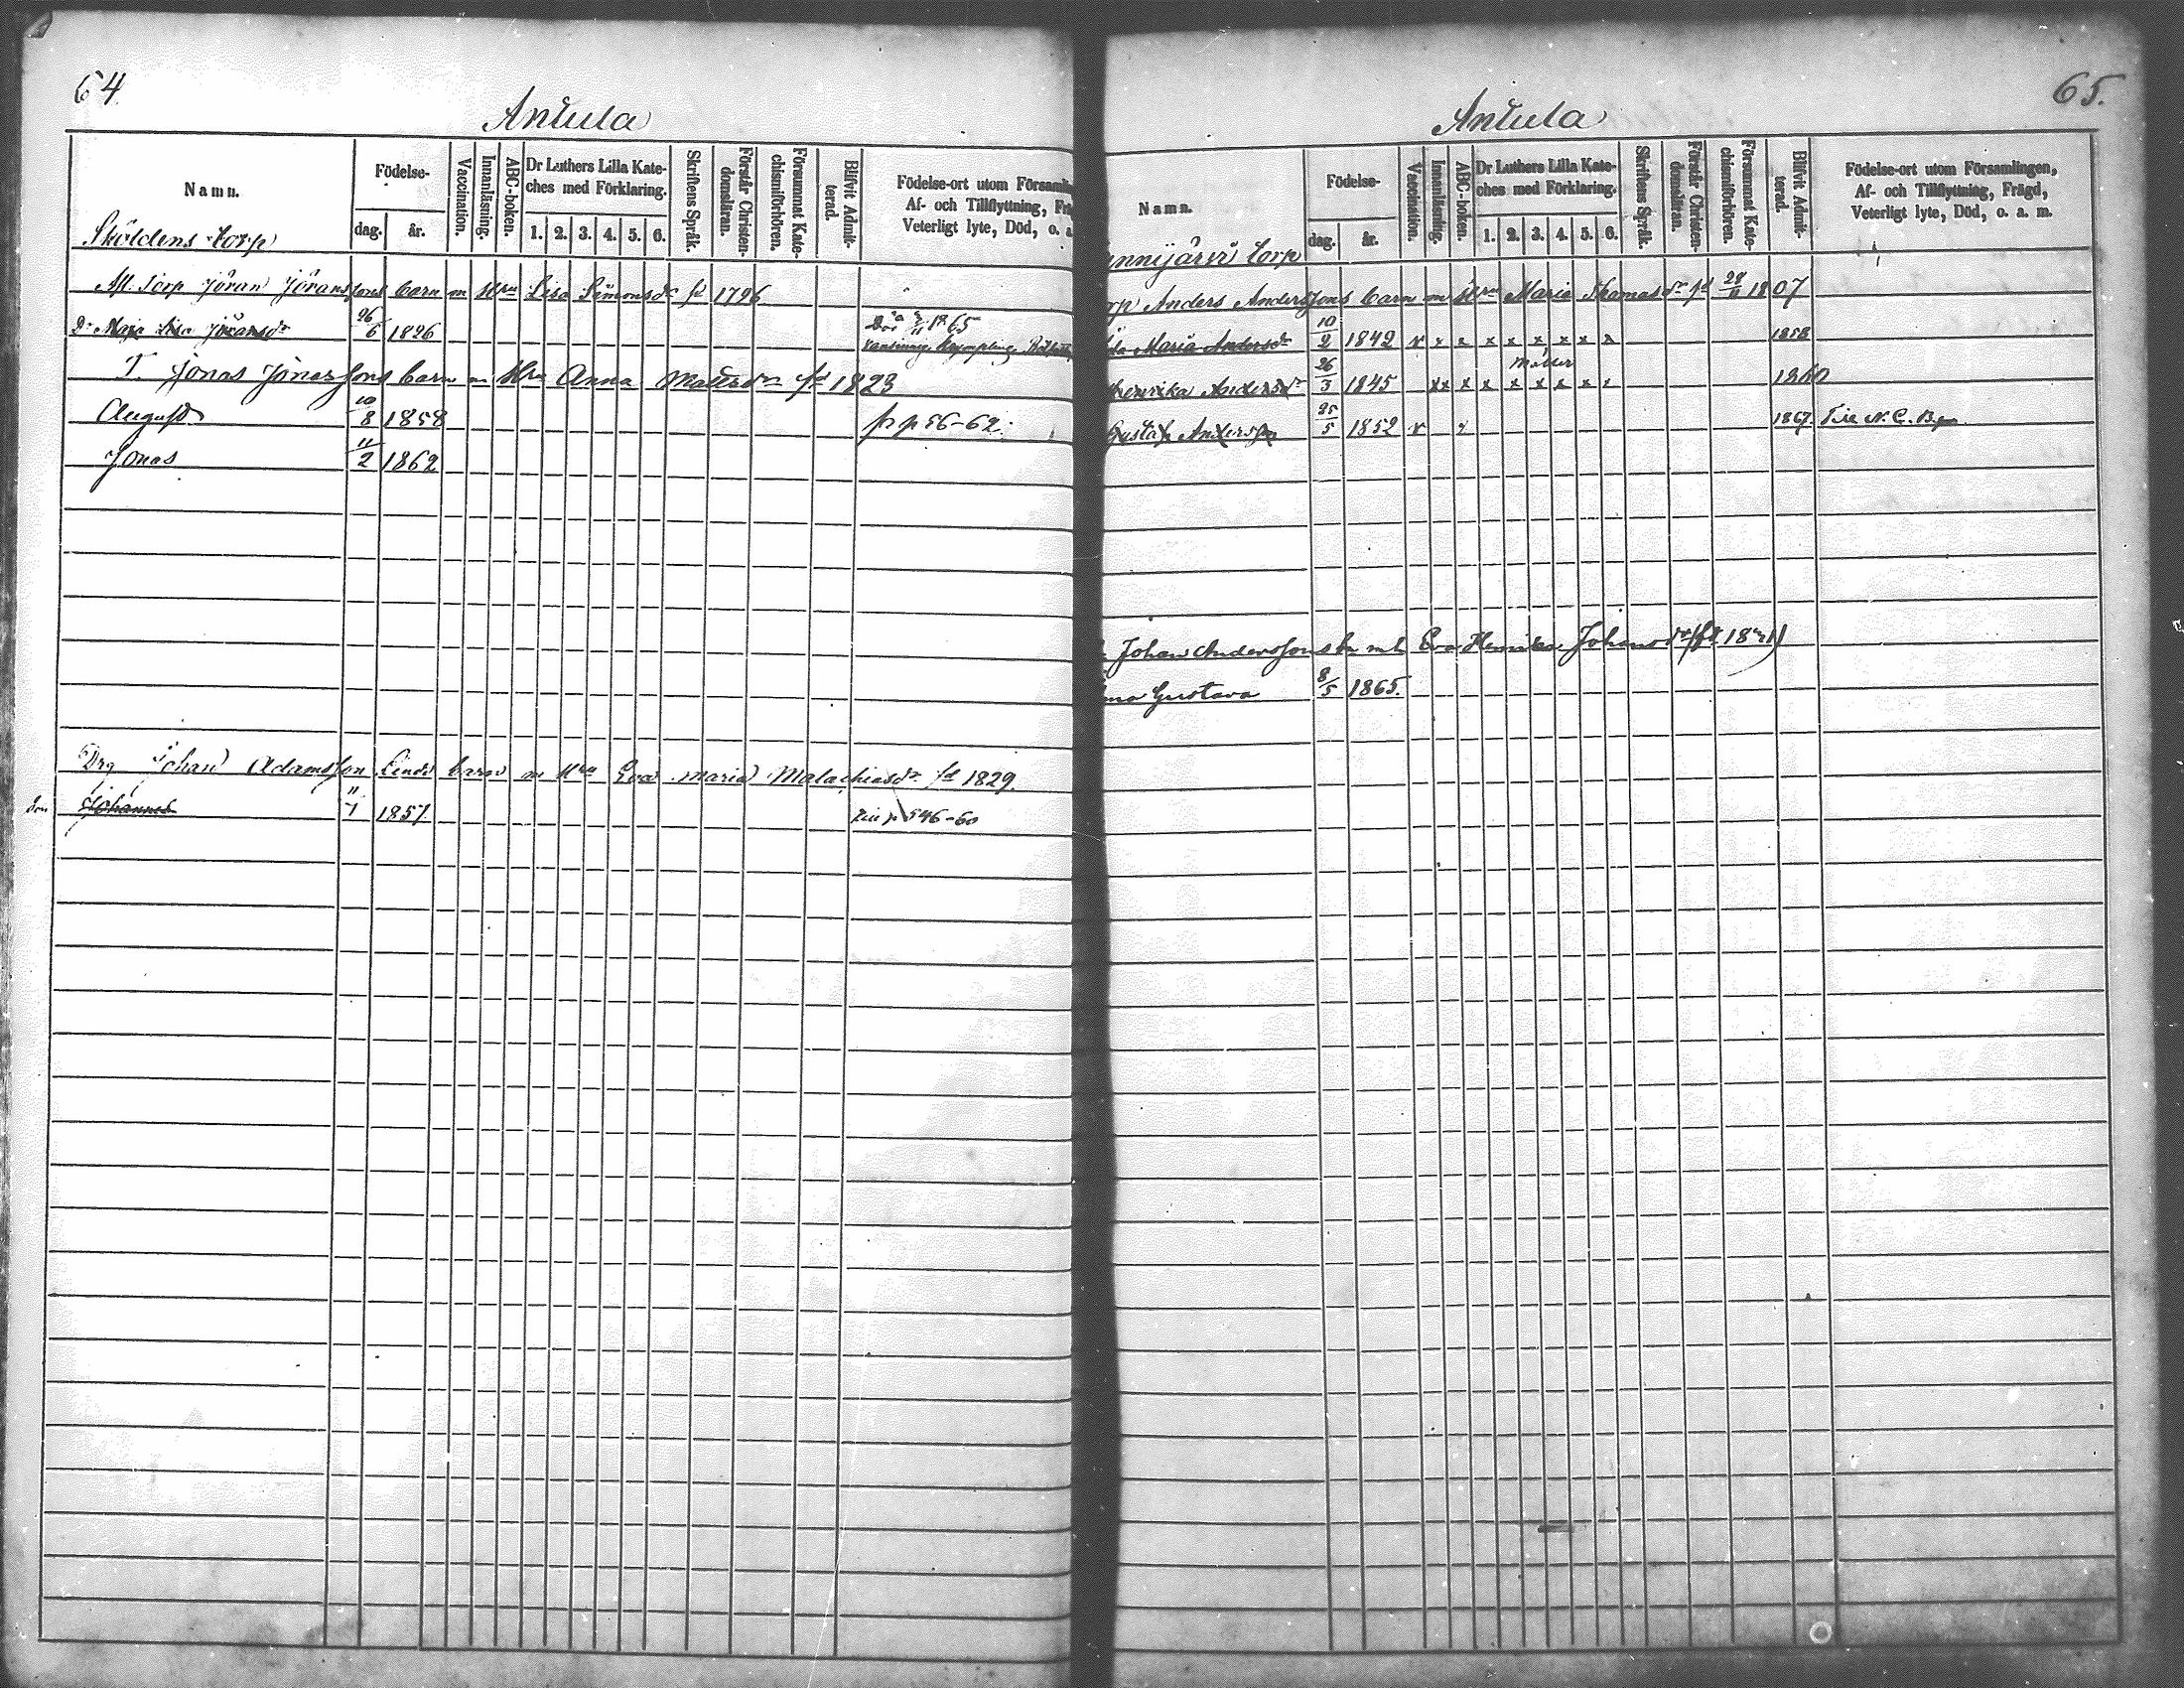 64.
Antula
Namn.
Födelse-
dag.
år.
Vaccination.
Innanläsning.
ABC-boken.
Dr Luthers Lilla Kate-
ches med Förklaring.
1. 2. 3. 4. 5. 6.
Skriftens Språk.
Förstår Christen-
domsläran.
Försummat Kate-
chismiförhören.
Blifvit Admit-
terad.
Födelse-ort utom Församl
Af- och Tillflyttning, Fr
Veterligt lyte, Död, o. a
Sköldens torp
Afl. Torp Jöran Jöranssons barn m Hru Lisa Simonsdr fd 1796
Dr Maja Lisa Jöransdr 26/6 1826 Död 1865
T. Jonas Jonassons barn m Hru Anna Mattsdr fd 1823
August 10/8 1858 fr p 56-62.
Jonas 11/2 1862
Drg Johan Adamsson Lindi barn m Hru Eva Maria Malachiasdr fd 1829.
Son Johannes 11/7 1857. till p 546-60
65.
Antula
Namn.
Födelse-
dag.
år.
Vaccination.
Innanläsning.
ABC-boken.
Dr Luthers Lilla Kate-
ches med Förklaring.
1. 2. 3. 4. 5. 6.
Skriftens Språk.
Förstår Christen-
domsläran.
Försummat Kate-
chismiförhören.
Blifvit Admit-
terad.
Födelse-ort utom Församlingen,
Af- och Tillflyttning, Frägd,
Veterligt lyte, Död, o. a. m.
nnijärvi torp
rp Anders Anderssons barn m Hru Maria Thomasdr fd 28/11 1807
Maria Andersdr 10/2 1842 v x x x x x x x x 1858
Henrika Andersdr 26/3 1845 xx x x x x x x x 1860
Gustaf Andersson 25/5 1852 v x 1867.
Johan Anderssons bn m h Eva Henrika Johansdr (fd 1841)
Gustava 8/5 1865.